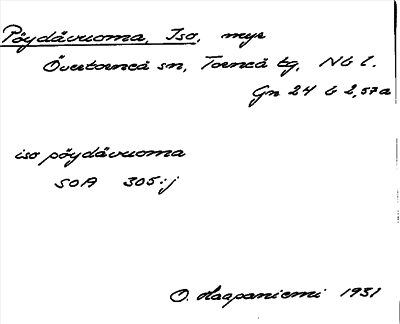 Pöydävuoma, Iso, myr
Övertorneå sn, Torneå tg, Nb l.
Gn 24 b 2,57a
iso pöydävuoma
SOA 305:j
O. Haapaniemi 1931